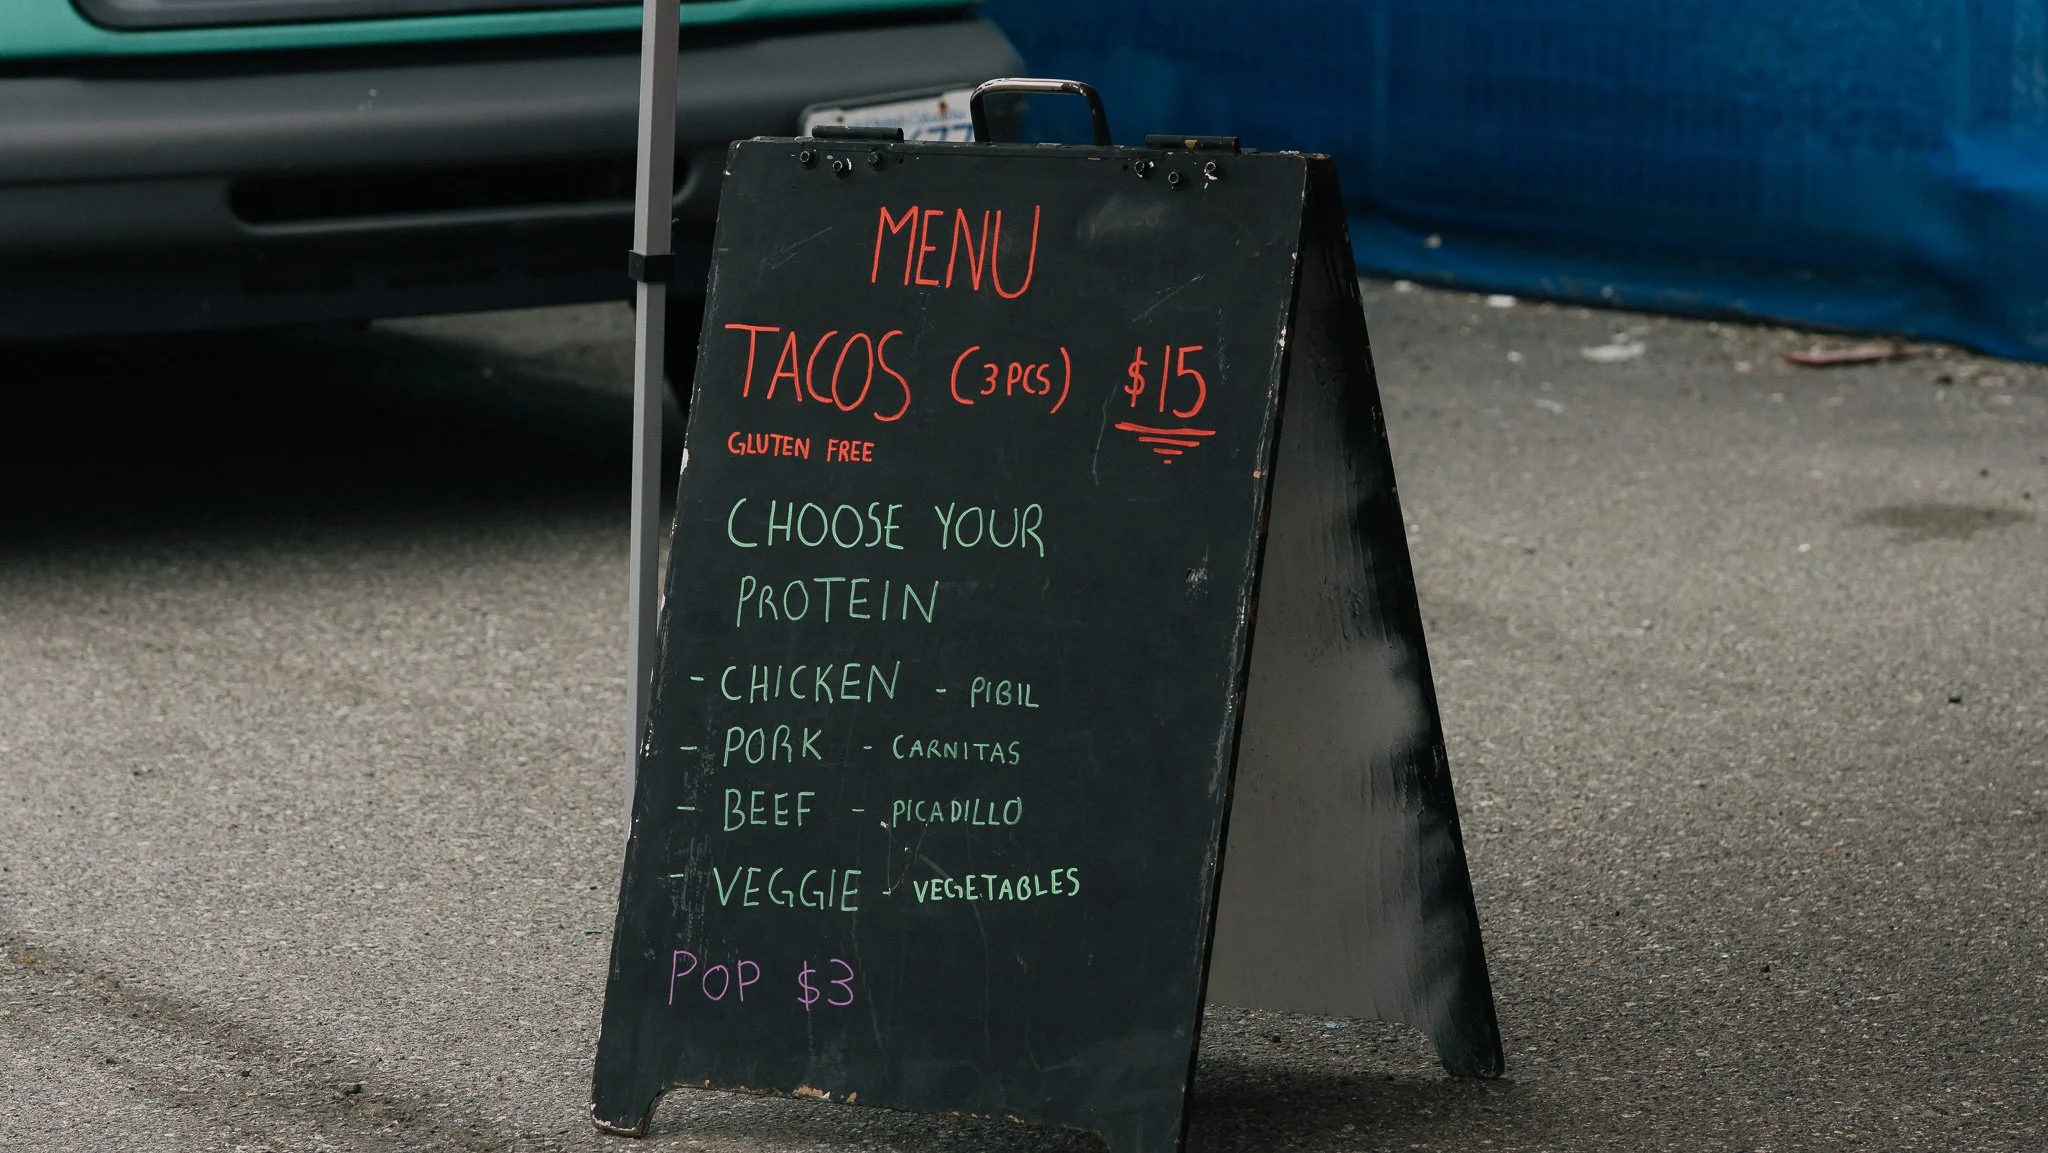 MENU
TACOS (3 PCS) $15
GLUTEN FREE
CHOOSE YOUR
PROTEIN
- CHICKEN - PIBIL
- PORK - CARNITAS
- BEEF - PICADILLO
- VEGGIE - VEGETABLES
POP $3